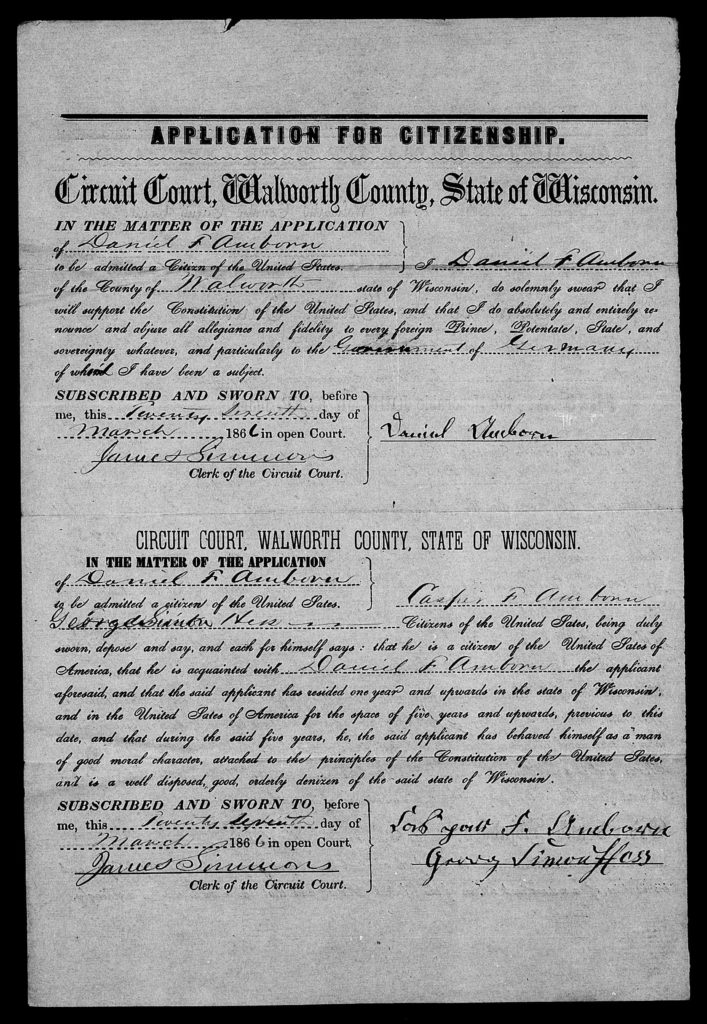 APPLICATION FOR CITIZENSHIP.
Circuit Court, Walworth County, State of Wisconsin.
IN THE MATTER OF THE APPLICATION
of Daniel F Amborn
to be admitted a Citizen of the United States.
I Daniel F Amborn
of the County of Walworth state of Wisconsin, do solemnly swear that I
will support the Constitution of the United States, and that I do absolutely and entirely re-
nounce and abjure all allegiance and fidelity to every foreign Prince, Potentate, State, and
sovereignty whatever, and particularly to the Government of Germany
of whom I have been a subject.
SUBSCRIBED AND SWORN TO, before
me, this Twenty Seventh day of
March 1866 in open Court.
James Simmons
Clerk of the Circuit Court.
Daniel Amborn
CIRCUIT COURT, WALWORTH COUNTY, STATE OF WISCONSIN.
IN THE MATTER OF THE APPLICATION
of Daniel F. Amborn
to be admitted a citizen of the United Sates.
Casper F Amborn
George Simon Hess Citizens of the United States, being duly
sworn, depose and say, and each for himself says: that he is a citizen of the United States of
America, that he is acquainted with Daniel F. Amborn the applicant
aforesaid, and that the said applicznt has resided one year and upwards in the state of Wisconsin,
and in the United Sates of America for the space of five years and upwards, previous to this
date, and that during the said five years, he, the said applicant has behaved himself as a man
of good moral character, attached to the principles of the Constitution of the United Sates,
and is a well disposed, good, orderly denizen of the said state of Wisconsin.
SUBSCRIBED AND SWORN TO, before
me, this Twenty Seventh day of
March 1866 in open Court,
James Simmons
Clerk of the Circuit Court.
F. Amborn
Georg Simon Hess